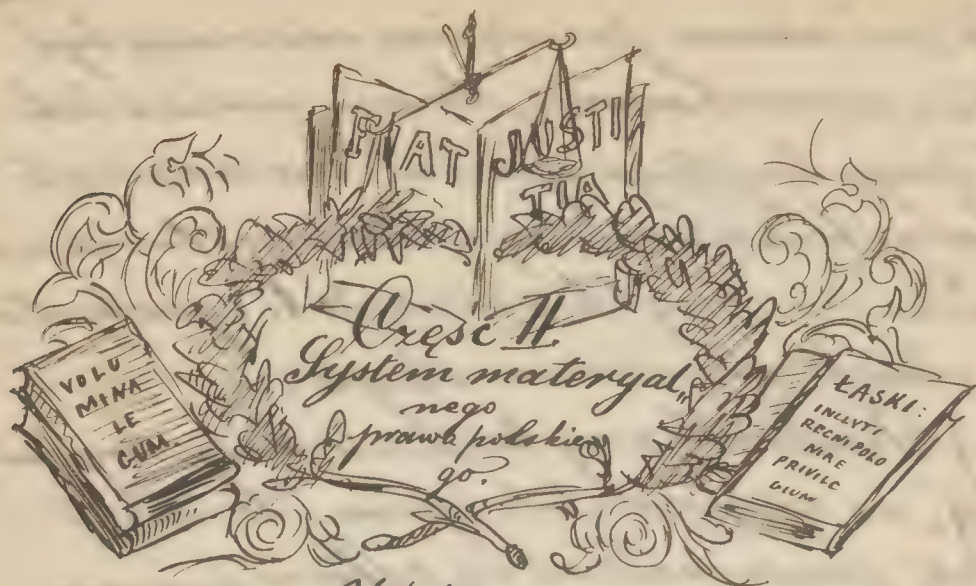 FIAT JUSTI
TIA
Część II.
System materyal„
nego
prawa polskie„
go.
VOLU
MINA
LE
GUM
ŁASKI:
INCLYTI
REGNI POLO
NIRE
PRIVILE
GIUM